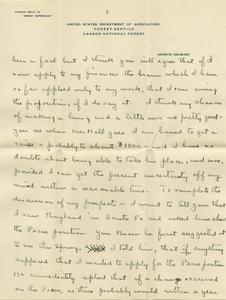 ADDRESS REPLY TO
"FOREST SUPERVISOR"
2
UNITED STATES DEPARTMENT OF AGRICULTURE
FOREST SERVICE
CARSON NATIONAL FOREST
ANTONITO, COLORADO
been a fool but I think you will agree that if I
now apply to my finances the brains which I have
so far applied only to my work, that I can swing
the proposition, if I do say it. I think my chances
of making a living and a little over are pretty good.
you see when Mr. Hall goes I am bound to get a
raise - probably to about $1800 - and I have no
doubt about being able to take his place, and now,
provided I can get the present uncertainty off my
mind within a reasonable time. To complete the
discussion of my prospects - I want to tell you that
I saw Ringland in Santa Fe and asked him about
the Pecos position. You know he first suggested it
to me this spring. I told him, that if anything
happened that I wanted to apply for the Pecos position
He immediately replied that if a change occurred
on the Pecos, as there probably would within a year